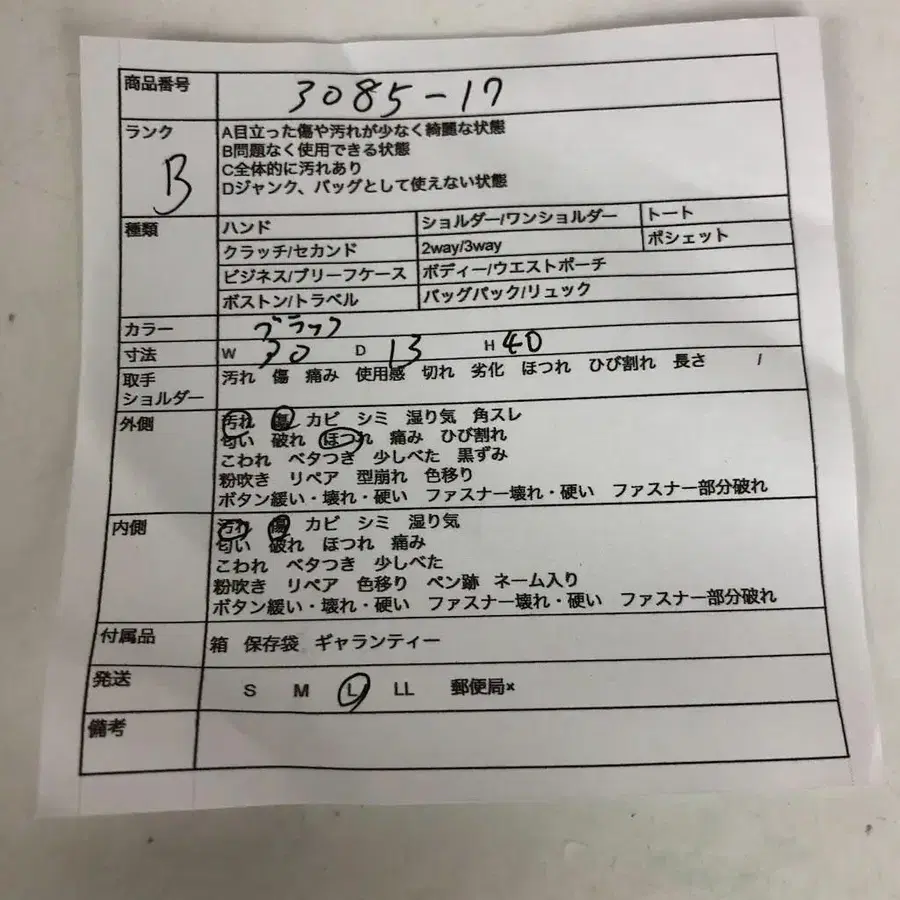 商品番号 3085-17
ランク B
A目立った傷や汚れが少なく綺麗な状態
B問題なく使用できる状態
C全体的に汚れあり
Dジャンク、バッグとして使えない状態
種類 ハンド ショルダー/ワンショルダー トート
クラッチ/セカンド 2way/3way ポシェット
ビジネス/ブリーフケース ボディー/ウエストポーチ
ボストン/トラベル バッグパック/リュック
カラー ブラック
寸法 W 30 D 13 H 40
取手 汚れ 傷 痛み 使用感 切れ 劣化 ほつれ ひび割れ 長さ /
ショルダー
外側 汚れ 傷 カビ シミ 湿り気 角スレ
匂い 破れ ほつれ 痛み ひび割れ
こわれ ベタつき 少しべた 黒ずみ
粉吹き リペア 型崩れ 色移り
ボタン緩い・壊れ・硬い ファスナー壊れ・硬い ファスナー部分破れ
内側 汚れ 傷 カビ シミ 湿り気
匂い 破れ ほつれ 痛み
こわれ ベタつき 少しべた
粉吹き リペア 色移り ペン跡 ネーム入り
ボタン緩い・壊れ・硬い ファスナー壊れ・硬い ファスナー部分破れ
付属品 箱 保存袋 ギャランティー
発送 S M L LL 郵便局×
備考